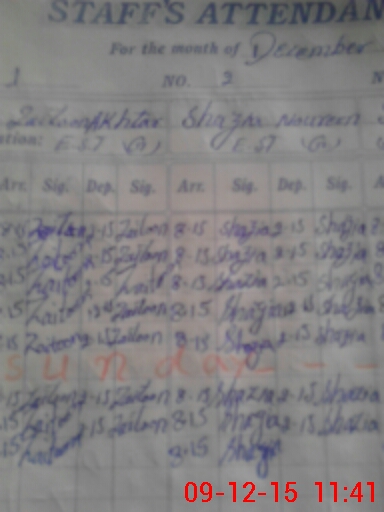 STAFF'S ATTENDAN
For the month of December
1 NO. 2 N
Zaitoon Akhtar Shazia Noureen
ation: EST (A) EST (A)
Arr. Sig. Dep. Sig. Arr. Sig. Dep. Sig. A
8-15 Zaitoon 2-15 Zaitoon 8-15 Shazia 2-15 Shazia
8-15 Zaitoon 2-15 Zaitoon 8-15 Shazia 2-15 Shazia
8-15 Zaitoon 2-15 Zaitoon 8-15 Shazia 2-15 Shazia
8-15 Zaitoon 2-15 Zaitoon 8-15 Shazia 2-15 Shazia
8-15 Zaitoon 2-15 Zaitoon 8-15 Shazia 2-15 Shazia
Sunday - - -
8-15 Zaitoon 2-15 Zaitoon 8-15 Shazia 2-15 Shazia
8-15 Zaitoon 2-15 Zaitoon 8-15 Shazia 2-15 Shazia
8-15 Zaitoon 8-15 Shazia
09-12-15 11:41